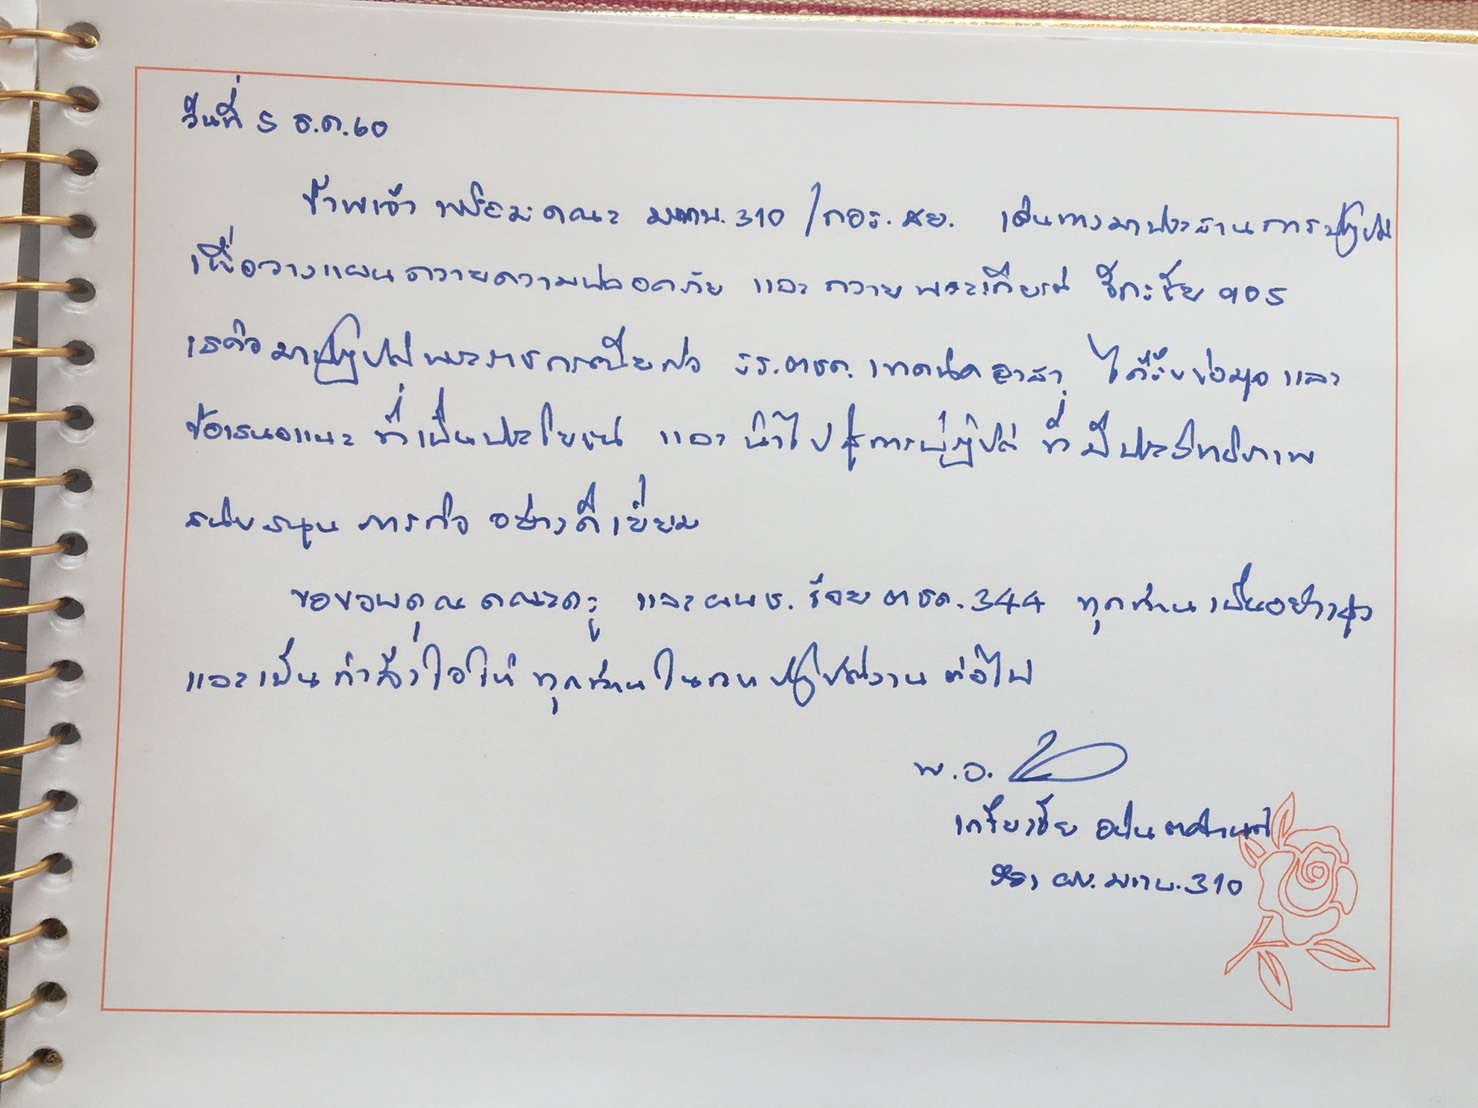 วันที่ 5 ธ.ค.60
ข้าพเจ้า พร้อมคณะ มทบ.310 /กอร. เดินทางมาประสานการปฏิบัติ
เพื่อวางแผนถวายความปลอดภัย และถวายพระเกียรติ 905
เสด็จมาปฏิบัติพระราชกรณียกิจ รร.ตชด.เทคนิคอาสา ได้รับข้อมูลและ
ข้อเสนอแนะ ที่เป็นประโยชน์ และนำไปสู่การปฏิบัติ ที่มีประสิทธิภาพ
สนับสนุน ภารกิจ อย่างดีเยี่ยม
ขอขอบคุณ คณะครู และ ร้อย ตชด.344 ทุกท่านเป็นอย่างสูง
และเป็นกำลังใจให้ทุกท่านในการปฏิบัติงานต่อไป
พ.อ.
เกรียงชัย
รอง ผบ.มทบ.310